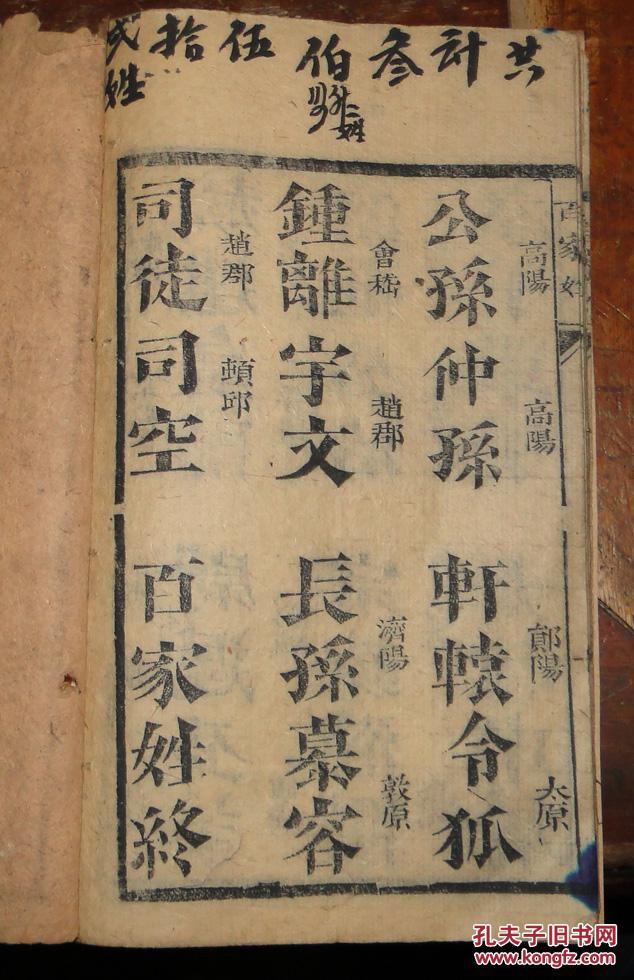 共計叄伯伍拾弍姓
百家姓
高陽 高陽 鄭陽 太原
公孫仲孫 軒轅令狐
會嵇 趙郡 濟陽 敦原
鍾離宇文 長孫慕容
趙郡 頓邱
司徒司空 百家姓終
孔夫子旧书网
www.kongfz.com